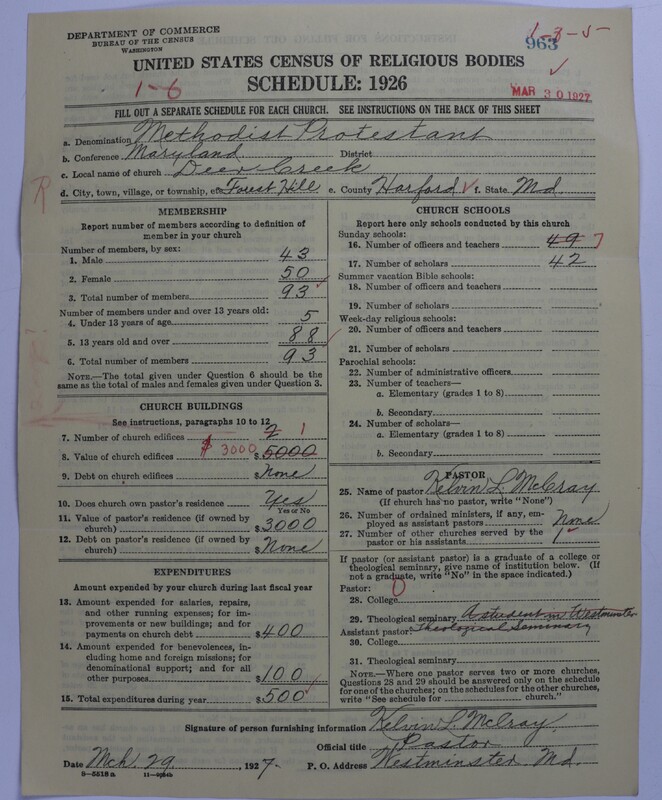 DEPARTMENT OF COMMERCE
BUREAU OF THE CENSUS
WASHINGTON
1-3-5-
963
UNITED STATES CENSUS OF RELIGIOUS BODIES
SCHEDULE: 1926
1-6
MAR 30 1927
FILL OUT A SEPARATE SCHEDULE FOR EACH CHURCH. SEE INSTRUCTIONS ON THE BACK OF THIS SHEET
a. Denomination Methodist Protestant
b. Conference Maryland District
c. Local name of church Deer Creek
d. City, town, village, or township, etc. Forest Hill e. County Harford f. State Md
MEMBERSHIP
Report number of members according to definition of member in your church
Number of members, by sex:
1. Male 43
2. Female 50
3. Total number of members 93
Number of members under and over 13 years old:
4. Under 13 years of age 5
5. 13 years old and over 88
6. Total number of members 93
NOTE.—The total given under Question 6 should be the same as the total of males and females given under Question 3.
CHURCH BUILDINGS
See instructions, paragraphs 10 to 12
7. Number of church edifices 2 1
8. Value of church edifices $3000 $5000
9. Debt on church edifices $None
10. Does church own pastor's residence Yes
Yes or No
11. Value of pastor's residence (if owned by church) $3000
12. Debt on pastor's residence (if owned by church) $None
EXPENDITURES
Amount expended by your church during last fiscal year
13. Amount expended for salaries, repairs, and other running expenses; for improvements or new buildings; and for payments on church debt $400
14. Amount expended for benevolences, including home and foreign missions; for denominational support; and for all other purposes $100
15. Total expenditures during year $500
CHURCH SCHOOLS
Report here only schools conducted by this church
Sunday schools:
16. Number of officers and teachers 49 7
17. Number of scholars 42
Summer vacation Bible schools:
18. Number of officers and teachers
19. Number of scholars
Week-day religious schools:
20. Number of officers and teachers
21. Number of scholars
Parochial schools:
22. Number of administrative officers
23. Number of teachers—
a. Elementary (grades 1 to 8)
b. Secondary
24. Number of scholars—
a. Elementary (grades 1 to 8)
b. Secondary
PASTOR
25. Name of pastor Kelvin L. McCray
(If church has no pastor, write "None")
26. Number of ordained ministers, if any, employed as assistant pastors None
27. Number of other churches served by the pastor or his assistants 1
If pastor (or assistant pastor) is a graduate of a college or theological seminary, give name of institution below. (If not a graduate, write "No" in the space indicated.)
Pastor: 0
28. College
29. Theological seminary A student in Westminster
Assistant pastor: Theological Seminary
30. College
31. Theological seminary
NOTE.—Where one pastor serves two or more churches, Questions 28 and 29 should be answered only on the schedule for one of the churches; on the schedules for the other churches, write "See schedule for church."
Signature of person furnishing information Kelvin L. McCray
Official title Pastor
Date Mch. 29, 1927. P. O. Address Westminster Md.